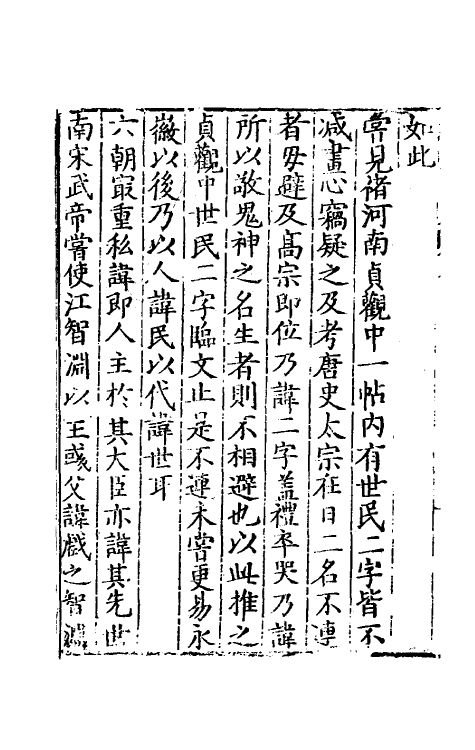 如此
嘗見褚河南貞觀中一帖內有世民二字皆不
減畫心竊疑之及考唐史太宗在日二名不連
者毋避及高宗即位乃諱二字蓋禮卒哭乃諱
所以敬鬼神之名生者則不相避也以此推之
貞觀中世民二字臨文止是不連未嘗更易永
徽以後乃以人諱民以代諱世耳
六朝㝡重私諱即人主於其大臣亦諱其先世
南宋武帝嘗使江智淵以王彧父諱戲之智淵